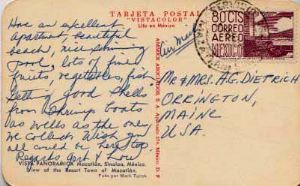 TARJETA POSTAL
"VISTACOLOR"
Life in México
Have an excellent
apartment, beautiful
beach, nice swimming
pool, lots of fine
fruits, vegetables, fish
Getting good shells
from shrimp boats
as well as the ones
we collect. Wish you
all could be here too.
Regards Gert & Lou
VISTA PANORAMICA Mazatlán, Sinaloa, México.
View of the Resort Town of Mazatlán.
Foto por Mark Turok
Air Mail
80 CTS
CORREO
AEREO
MEXICO
Mr & Mrs. A. G. DIETRICH
ORRINGTON,
MAINE
U.S.A.